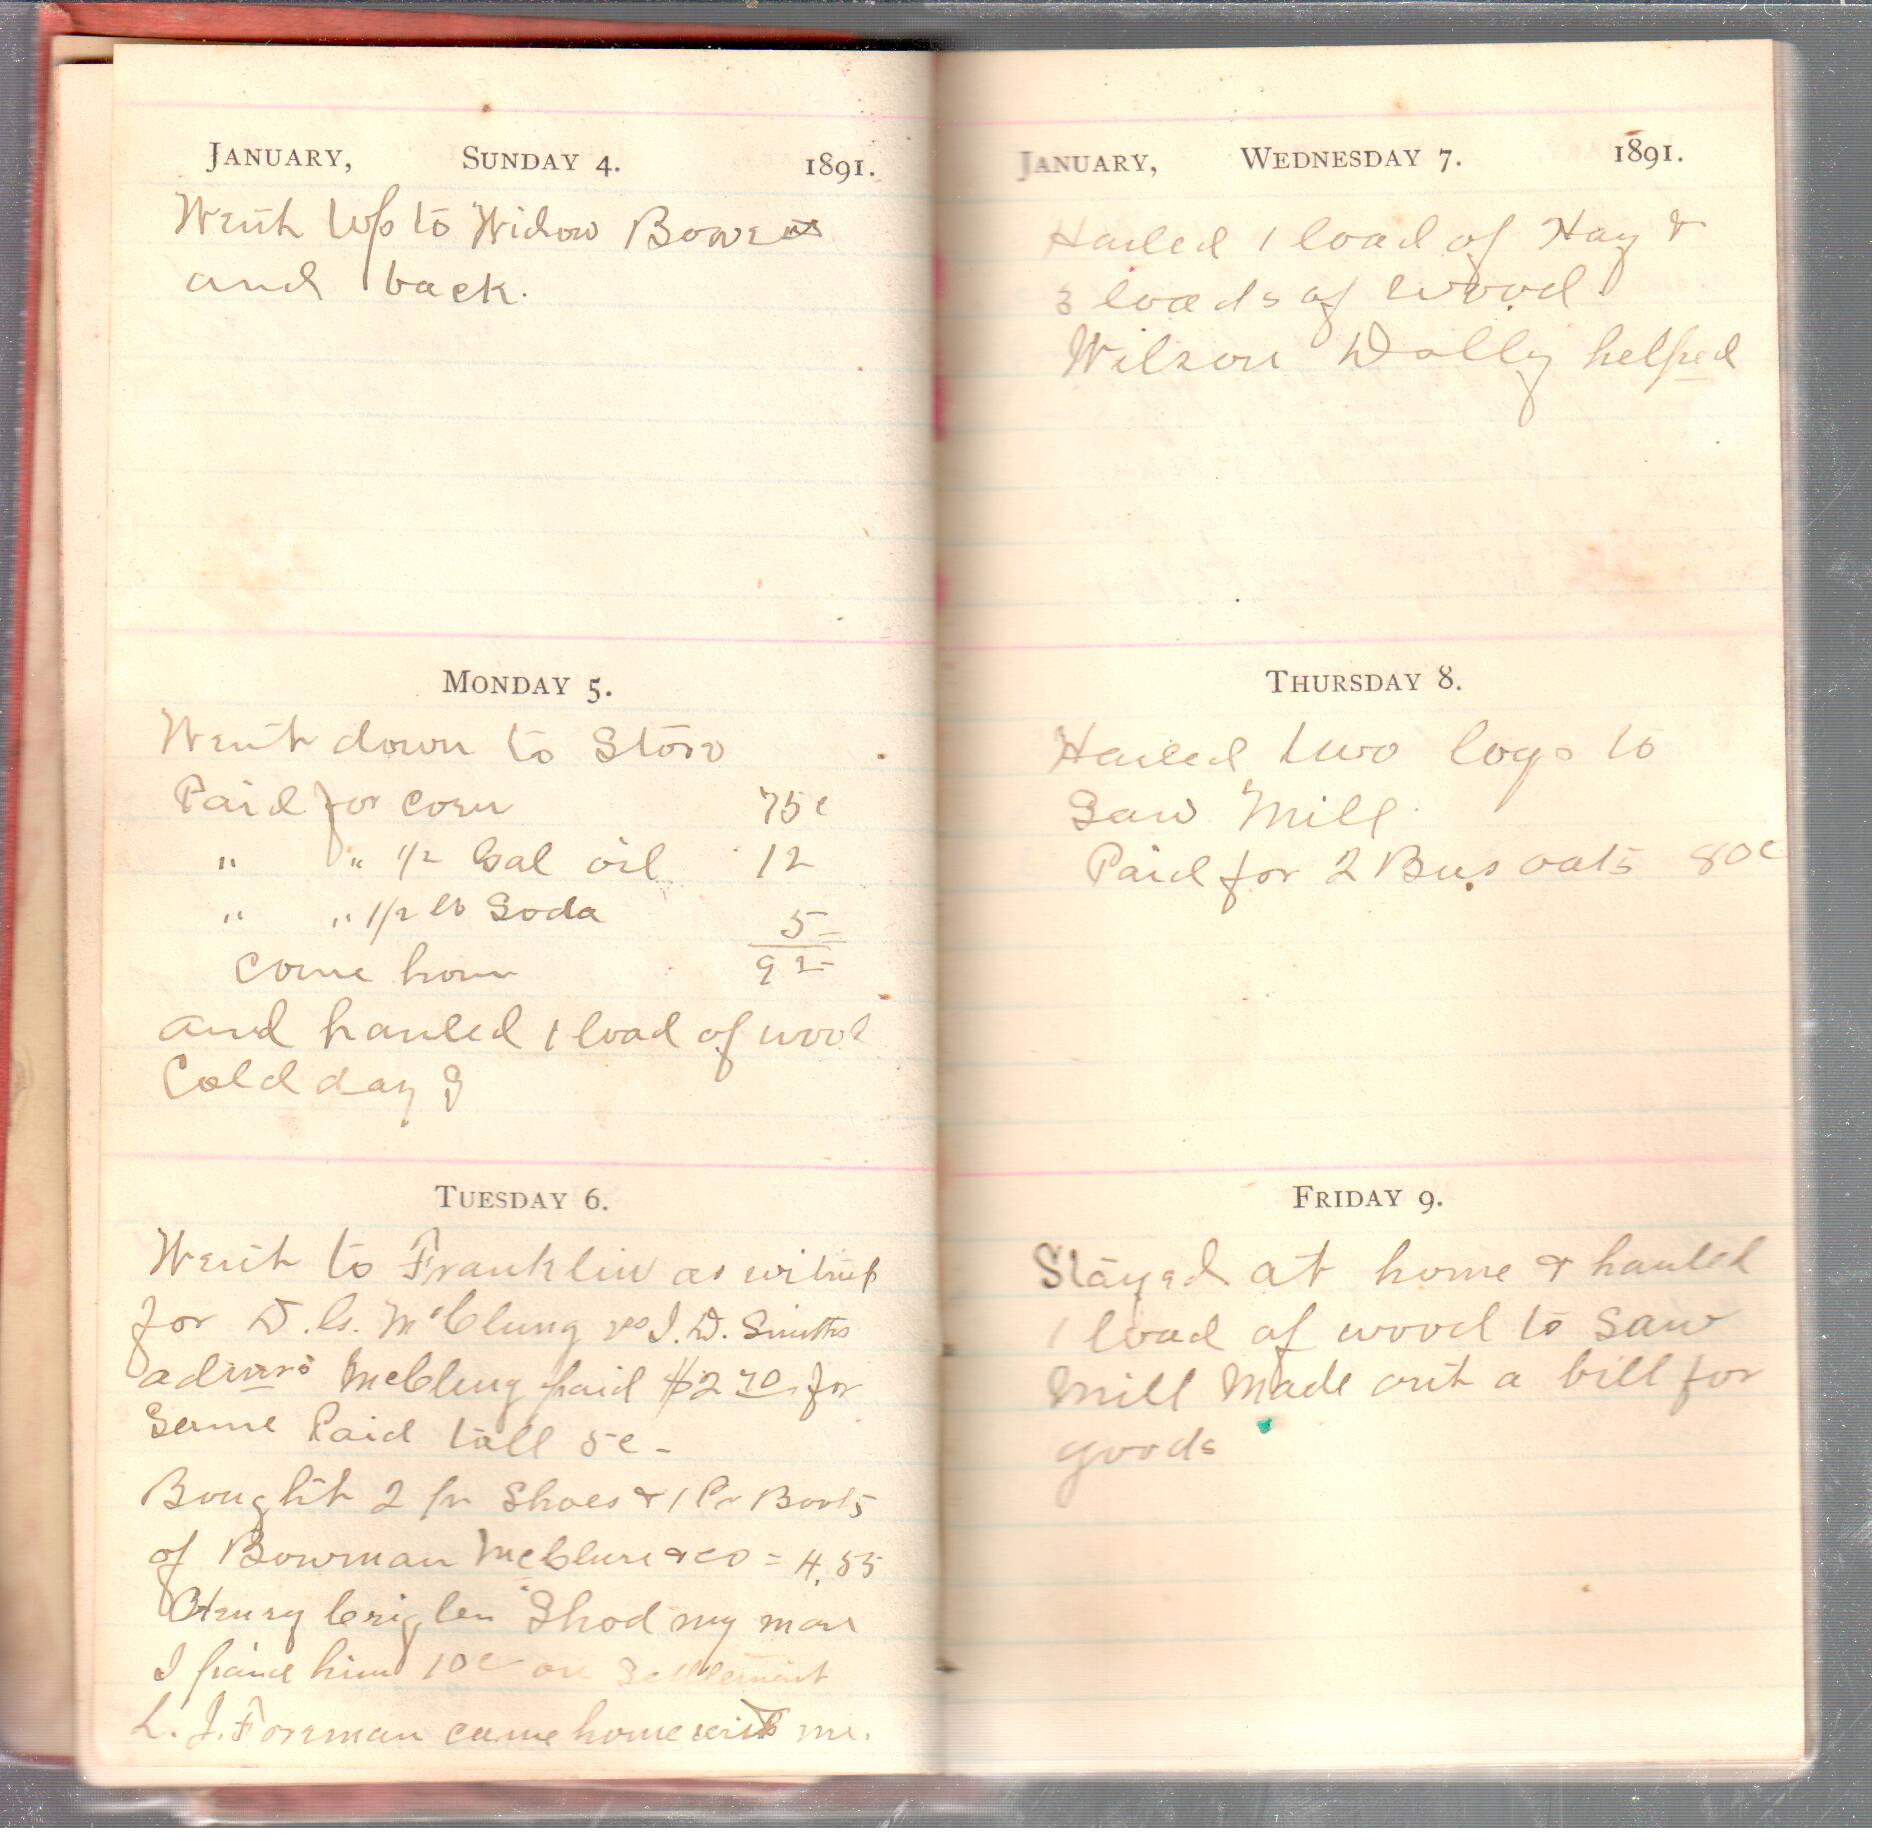 January, Sunday 4. 1891.
Went up to Widow
and back.
Monday 5.
Went down to Store
Paid for corn 75c
" " 1/2 Gal oil 12
" " 1/2 lb Soda 5
Come home 92
and hauled 1 load of wood
Cold day
Tuesday 6.
Went to Franklin as witness
for D. G. McClung vs I. D. Smiths
McClung paid $2 for
Same Paid toll 5c-
Bought 2 pr Shoes & 1 Pr Boots
of Bowman McClure & co = 4.55
Henry Criglen Shod my mare
I paid him 10c on Settlement
L. J. Foreman came home with me.
January, Wednesday 7. 1891.
Hauled 1 load of Hay &
3 loads of wood
Wilson Dolly helped
Thursday 8.
Hauled two logs to
Saw Mill.
Paid for 2 Bus oats 80c
Friday 9.
Stayed at home & hauled
1 load of wood to Saw
Mill Made out a bill for
goods